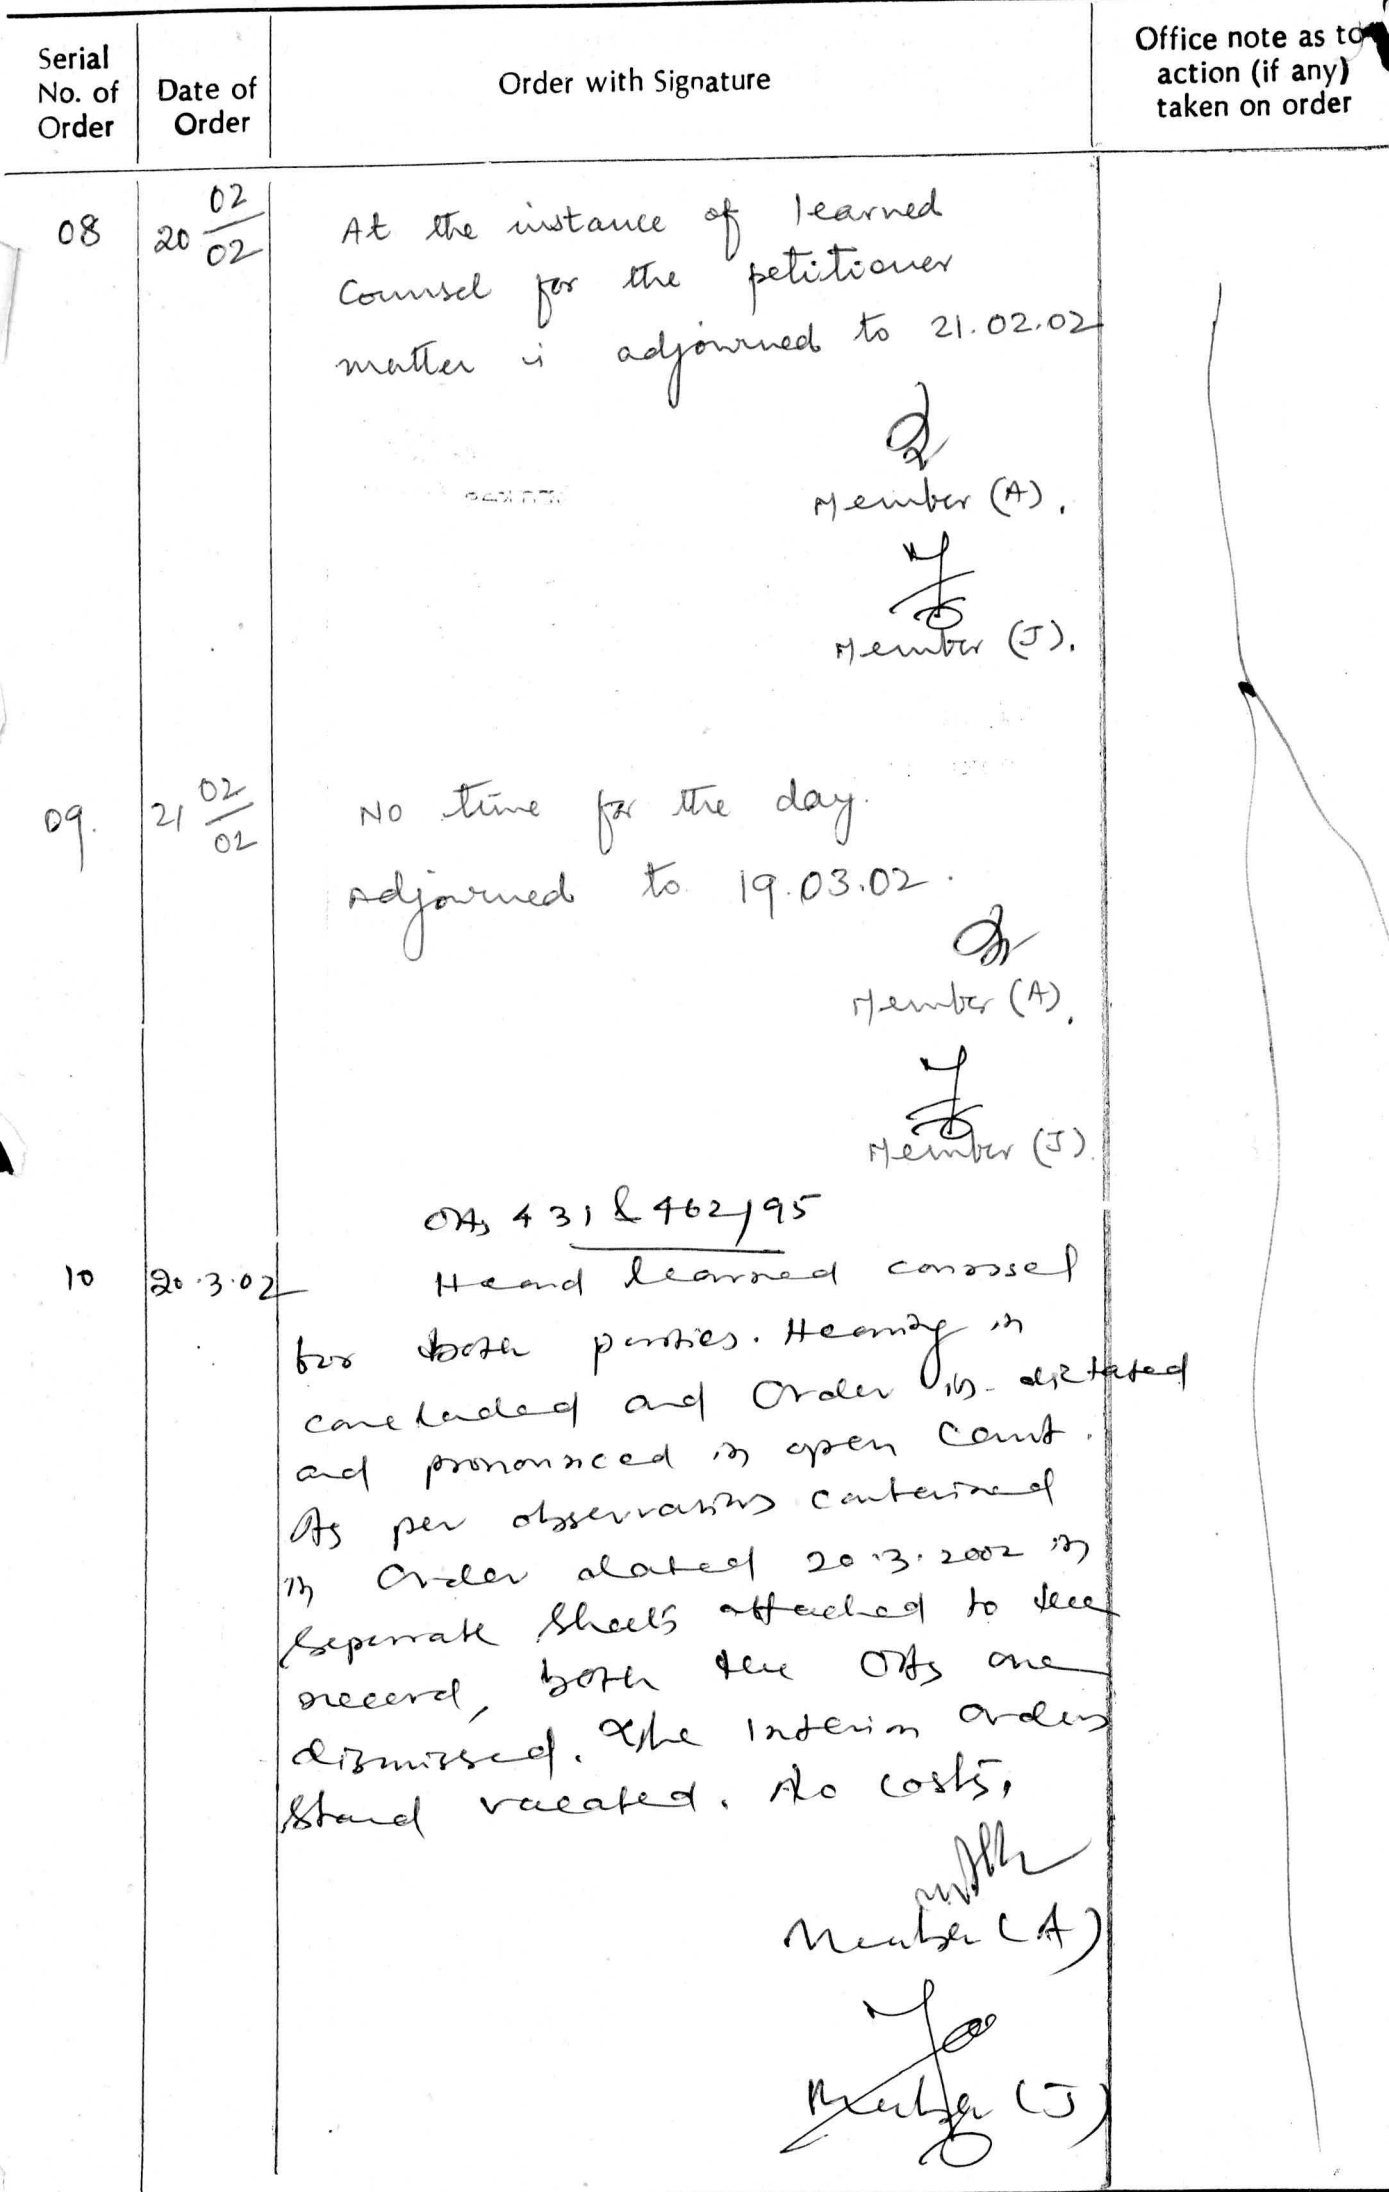 Serial No. of Order
Date of Order
Order with Signature
Office note as to action (if any) taken on order
08
20 02/02
At the instance of learned
Counsel for the petitioner
matter is adjourned to 21.02.02
Member (A).
Member (J).
09.
21 02/02
No time for the day.
Adjourned to 19.03.02.
Member (A).
Member (J).
OAs 431 & 462/95
10
20.3.02
Heard learned counsel
for both parties. Hearing is
concluded and Order is dictated
and pronounced in open Court.
As per observations contained
in Order dated 20.3.2002 in
separate sheets attached to the
record, both the OAs are
dismissed. The Interim Orders
stand vacated. No costs.
Member (A)
Member (J)